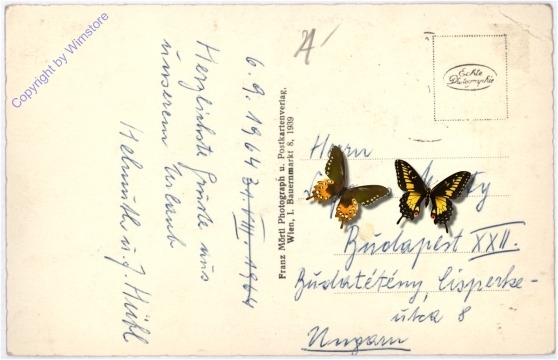 Copyright by Wimstore
6. 9. 1964 31. VIII. 1964
Herzlichste Grüße aus
unserem Urlaub
Helmuth u. J. Heihl
Franz Mörtl Photograph u. Postkartenverlag,
Wien, I. Bauernmarkt 8, 1939
Echte
Photographie
Herrn
Budapest XXII.
Budatétény, Csisperke-
utca 8
Ungarn